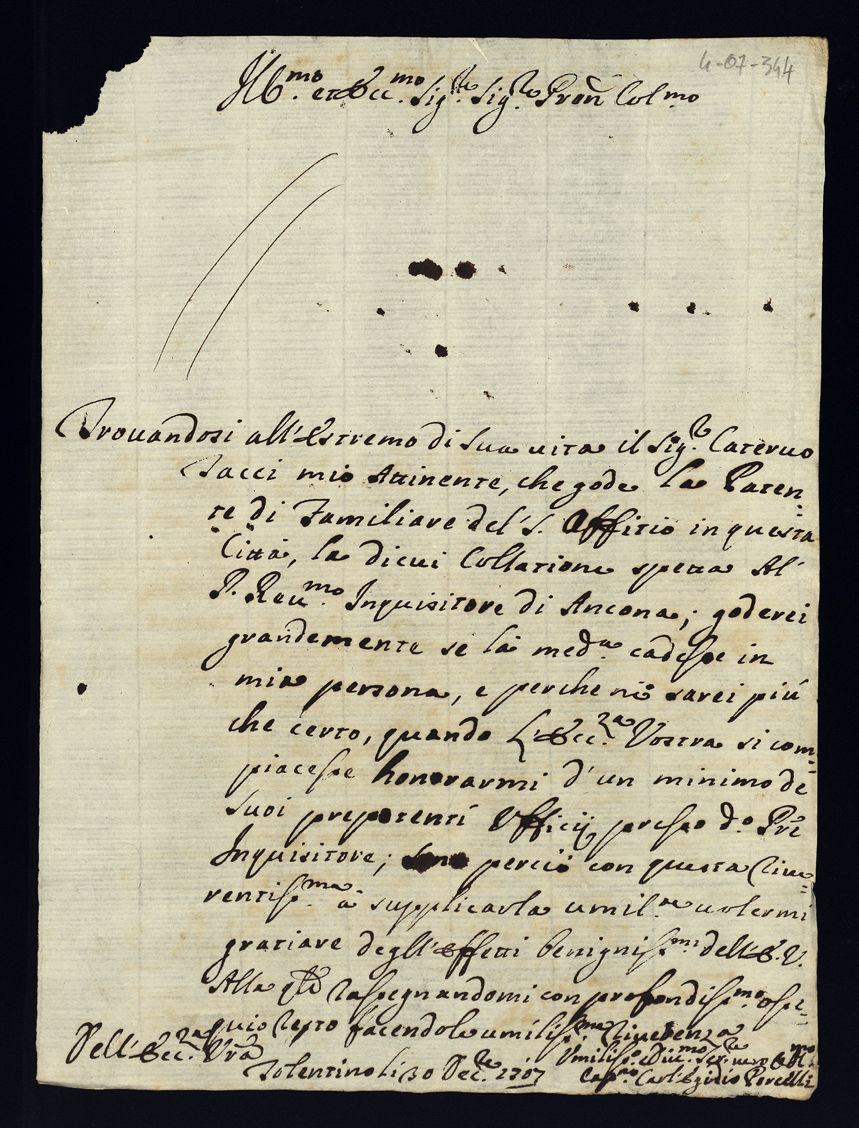 4-07-344
Ill.mo et Ecc.mo Sig.re Sig.re Pron Col.mo
Trouandosi all'Estremo di sua uita il Sig.re Cateruo
Tacci mio Attinente, che gode la Paten=
te di Familiare del S. Offitio in questa
Città, la di cui Collatione spetta Al'
P. Reu.mo Inquisitore di Ancona; goderei
grandemente se la med.a cadesse in
mia persona, e perche nè sarei più
che certo, quando l'Ecc.za Vostra si com=
piacesse honorarmi d'un minimo de
suoi prepotenti Vfficij presso d.o Prē
Inquisitore; perciò con questa riue=
rentiss.ma à supplicarla umil.te uolermi
gratiare degl'effetti benigniss.mi dell'E.V.
Alla qle rassegnandomi con profondiss.mo osse=
quio resto facendole umiliss.ma riuerenza
Dell'Ecc.za Vrā
Tolentino li 30 Dec.re 1707
Vmiliss.o e Diu.mo Ser.re uero
Cap.no Carl'Egidio Porcelli